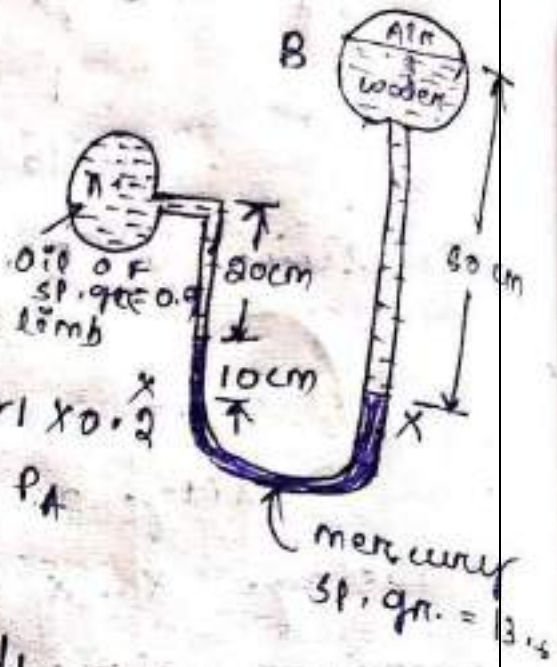 B
Air
water
A
oil of
sp. gr = 0.9
limb
20cm
10cm
X
X
×0.2
PA
mercury
sp. gr. = 13.6